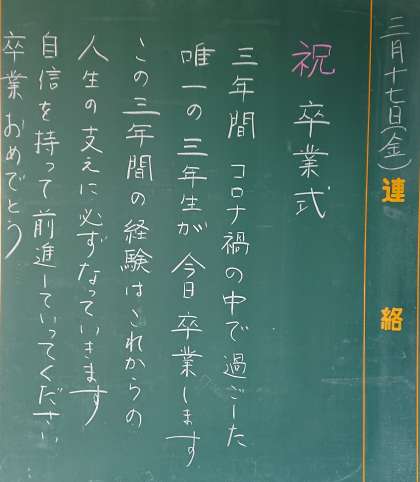 三月十七日(金)
連絡
祝 卒業式
三年間 コロナ禍の中で過ごした
唯一の三年生が今日卒業します
この三年間の経験はこれからの
人生の支えに必ずなっていきます
自信を持って前進していってください
卒業おめでとう